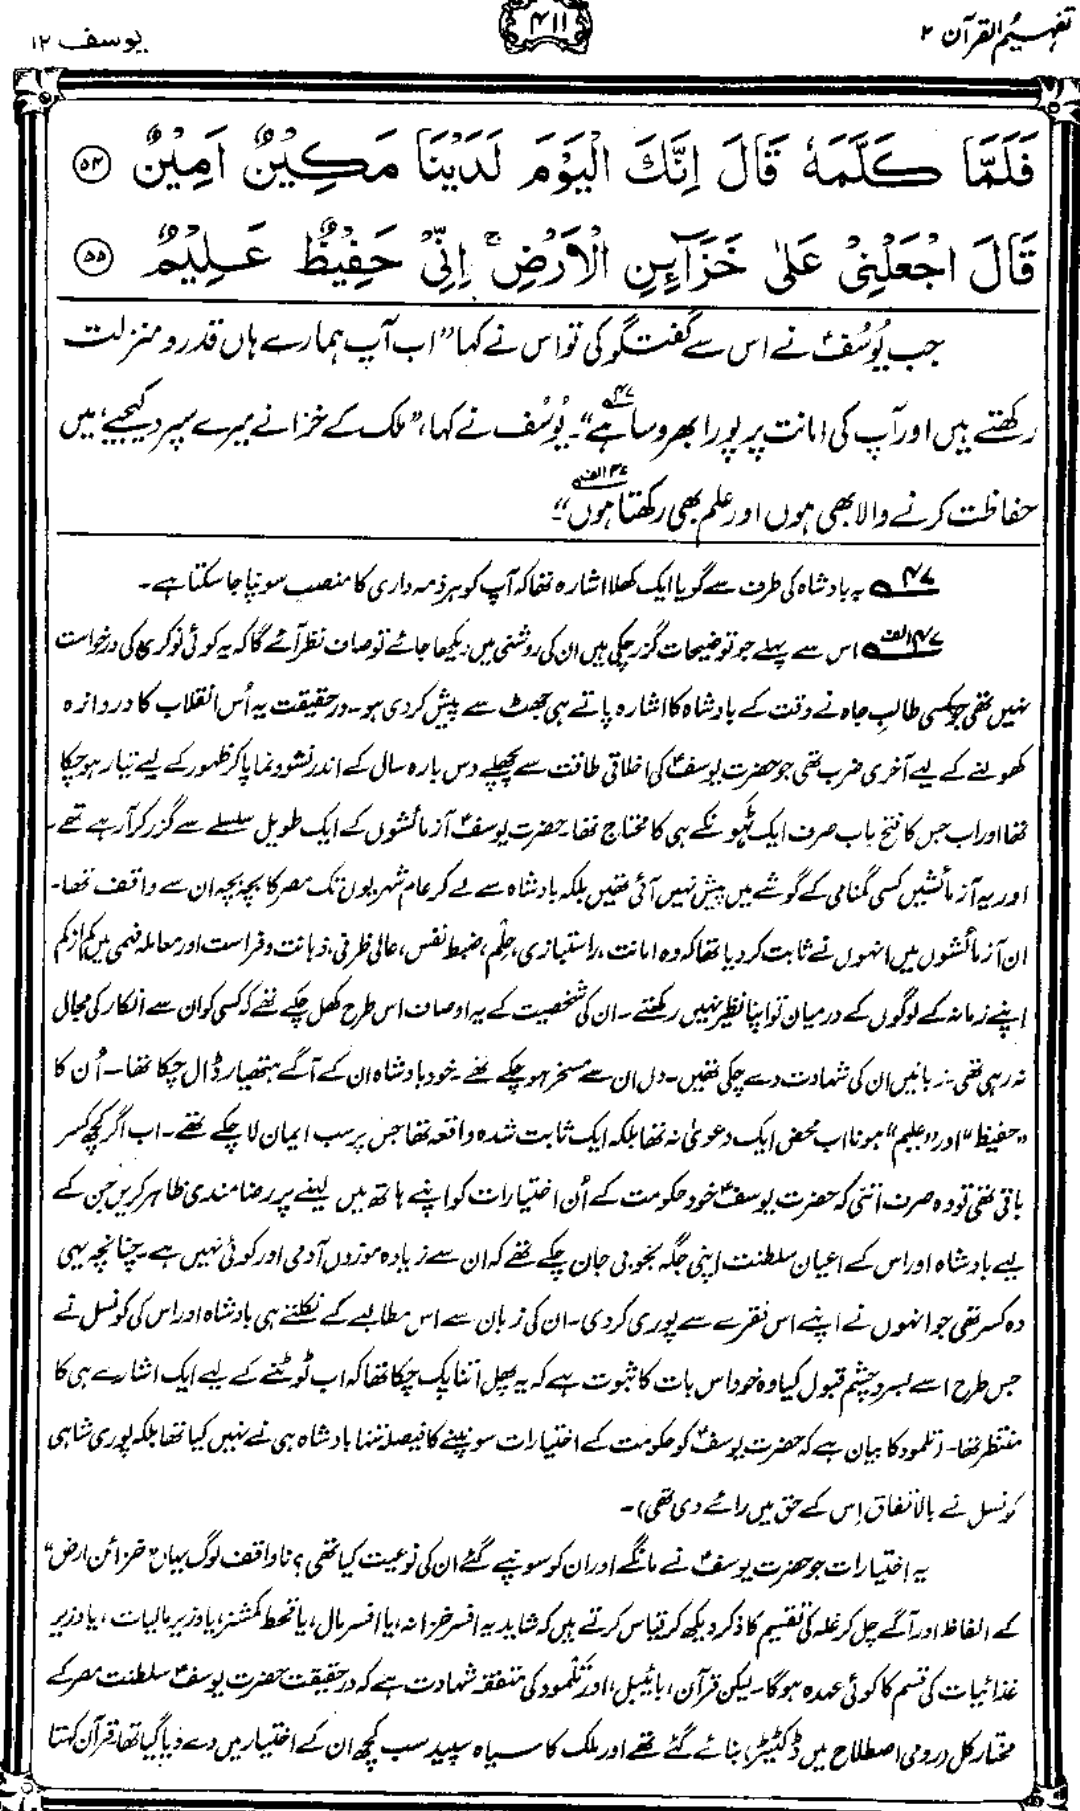 تفہیم القرآن ۲
۴۱۱
یوسف ۱۲
فَلَمَّا كَلَّمَهٗ قَالَ اِنَّكَ الْيَوْمَ لَدَيْنَا مَكِيْنٌ اَمِيْنٌ ۵۴
قَالَ اجْعَلْنِيْ عَلٰى خَزَآئِنِ الْاَرْضِ ۚ اِنِّيْ حَفِيْظٌ عَلِيْمٌ ۵۵
جب یُوسُفؑ نے اس سے گفتگو کی تو اس نے کہا "اب آپ ہمارے ہاں قدر و منزلت
رکھتے ہیں اور آپ کی امانت پر پورا بھروسا ہے"۔ ۴۷ یُوسُف نے کہا، "ملک کے خزانے میرے سپرد کیجیے، میں
حفاظت کرنے والا بھی ہوں اور علم بھی رکھتا ہوں"۔ ۴۷ الف
۴۷ یہ بادشاہ کی طرف سے گویا ایک کھلا اشارہ تھا کہ آپ کو ہر ذمہ داری کا منصب سونپا جا سکتا ہے۔
۴۷ الف اس سے پہلے جو توضیحات گزر چکی ہیں ان کی روشنی میں دیکھا جائے تو صاف نظر آئے گا کہ یہ کوئی نوکری کی درخواست
نہیں تھی جو کسی طالبِ جاہ نے وقت کے بادشاہ کا اشارہ پاتے ہی جھٹ سے پیش کر دی ہو۔ درحقیقت یہ اُس انقلاب کا دروازہ
کھولنے کے لیے آخری ضرب تھی جو حضرت یوسفؑ کی اخلاقی طاقت سے پچھلے دس بارہ سال کے اندر نشوونما پا کر ظہور کے لیے تیار ہو چکا
تھا اور اب جس کا فتح باب صرف ایک ٹھونکے ہی کا محتاج تھا۔ حضرت یوسفؑ آزمائشوں کے ایک طویل سلسلے سے گزر کر آ رہے تھے۔
اور یہ آزمائشیں کسی گمنامی کے گوشے میں پیش نہیں آئی تھیں بلکہ بادشاہ سے لے کر عام شہریوں تک مصر کا بچہ بچہ ان سے واقف تھا۔
ان آزمائشوں میں انہوں نے ثابت کر دیا تھا کہ وہ امانت، راستبازی، حِلم، ضبط نفس، عالی ظرفی، ذہانت و فراست اور معاملہ فہمی میں کم از کم
اپنے زمانہ کے لوگوں کے درمیان تو اپنا نظیر نہیں رکھتے۔ ان کی شخصیت کے یہ اوصاف اس طرح کھل چکے تھے کہ کسی کو ان سے انکار کی مجال
نہ رہی تھی۔ زبانیں ان کی شہادت دے چکی تھیں۔ دل ان سے مسخر ہو چکے تھے۔ خود بادشاہ ان کے آگے ہتھیار ڈال چکا تھا۔ اُن کا
"حفیظ" اور "علیم" ہونا اب محض ایک دعویٰ نہ تھا بلکہ ایک ثابت شدہ واقعہ تھا جس پر سب ایمان لا چکے تھے۔ اب اگر کچھ کسر
باقی تھی تو وہ صرف اتنی کہ حضرت یوسفؑ خود حکومت کے اُن اختیارات کو اپنے ہاتھ میں لینے پر رضامندی ظاہر کریں جن کے
لیے بادشاہ اور اس کے اعیان سلطنت اپنی جگہ بخوبی جان چکے تھے کہ ان سے زیادہ موزوں آدمی اور کوئی نہیں ہے۔ چنانچہ یہی
وہ کسر تھی جو انہوں نے اپنے اس فقرے سے پوری کر دی۔ ان کی زبان سے اس مطالبے کے نکلتے ہی بادشاہ اور اس کی کونسل نے
جس طرح اسے بسر و چشم قبول کیا وہ خود اس بات کا ثبوت ہے کہ یہ پھل اتنا پک چکا تھا کہ اب ٹوٹنے کے لیے ایک اشارے ہی کا
منتظر تھا۔ (تلمود کا بیان ہے کہ حضرت یوسفؑ کو حکومت کے اختیارات سونپنے کا فیصلہ تنہا بادشاہ ہی نے نہیں کیا تھا بلکہ پوری شاہی
کونسل نے بالاتفاق اِس کے حق میں رائے دی تھی)۔
یہ اختیارات جو حضرت یوسفؑ نے مانگے اور ان کو سونپے گئے ان کی نوعیت کیا تھی؟ ناواقف لوگ یہاں "خزائن ارض"
کے الفاظ اور آگے چل کر غلہ کی تقسیم کا ذکر دیکھ کر قیاس کرتے ہیں کہ شاید یہ افسر خزانہ، یا افسر مال، یا قحط کمشنر، یا وزیر مالیات، یا وزیر
غذائیات کی قسم کا کوئی عہدہ ہوگا۔ لیکن قرآن، بائیبل، اور تلمود کی متفقہ شہادت ہے کہ درحقیقت حضرت یوسفؑ سلطنت مصر کے
مختار کل (رومی اصطلاح میں ڈکٹیٹر) بنائے گئے تھے اور ملک کا سیاہ سپید سب کچھ ان کے اختیار میں دے دیا گیا تھا۔ قرآن کہتا